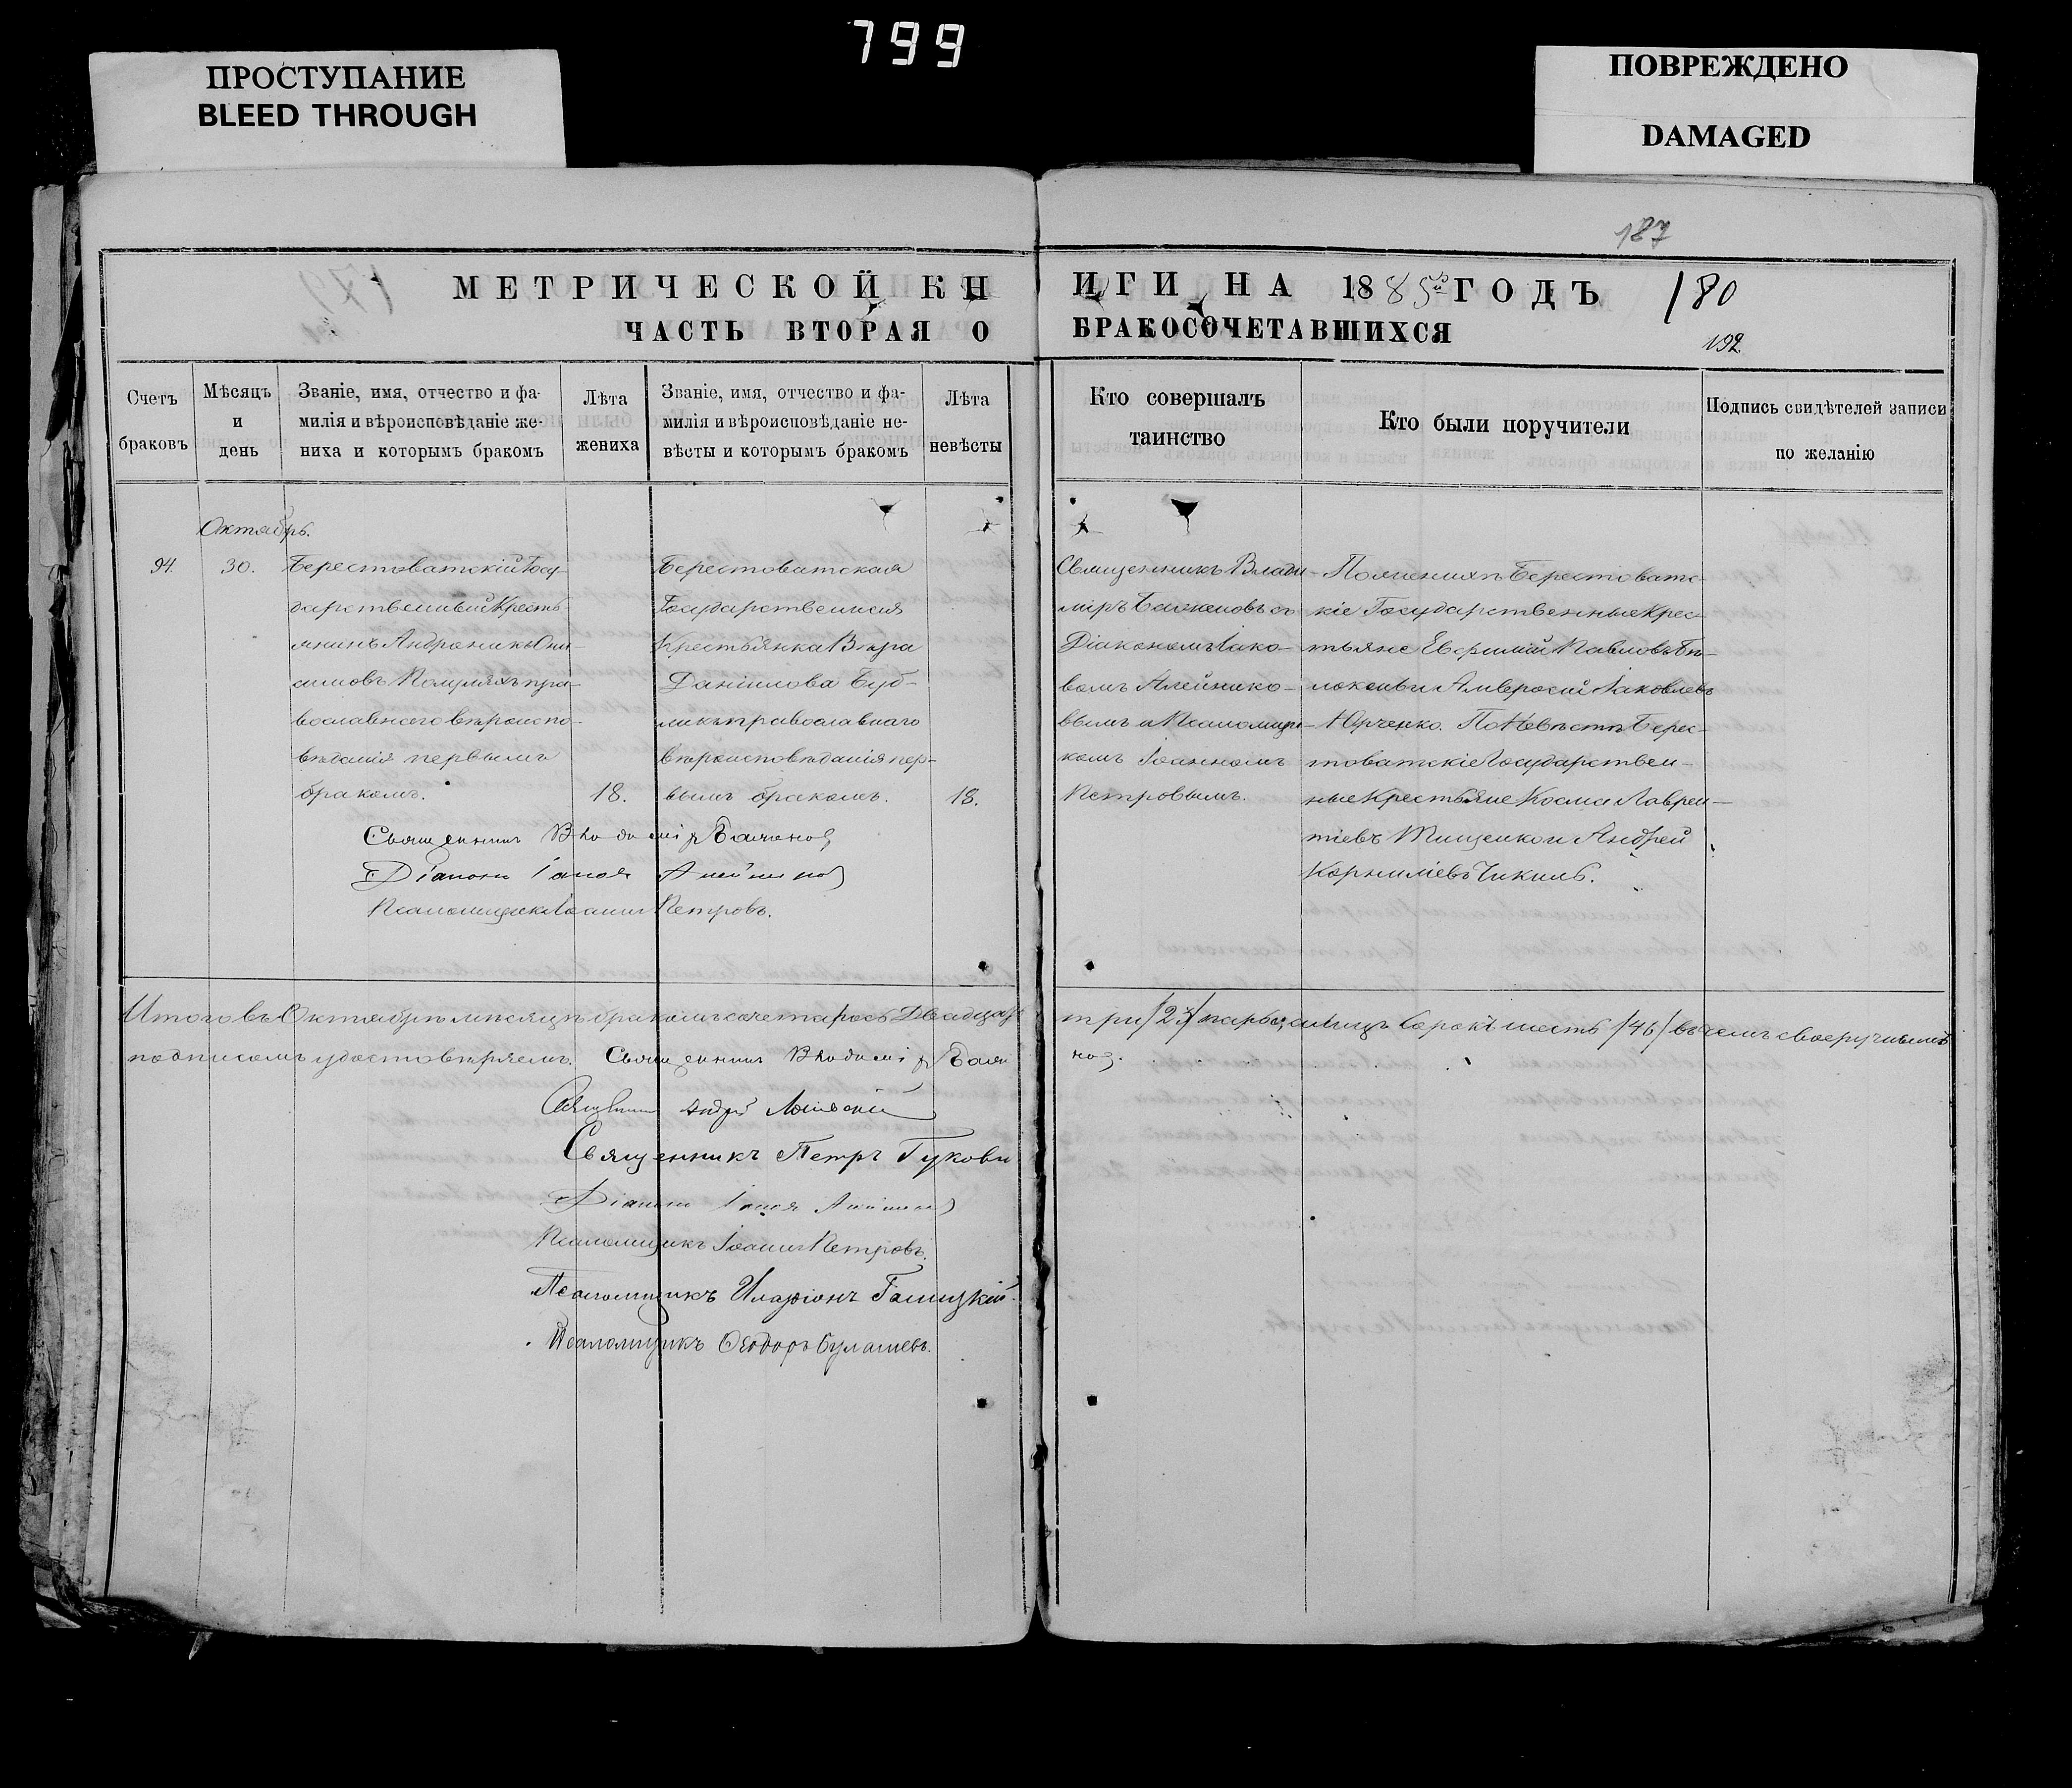 799
ПРОСТУПАНИЕ
BLEED THROUGH
ПОВРЕЖДЕНО
DAMAGED
187
МЕТРИЧЕСКОЙ КН
ИГИ НА 1885й ГОДЪ
180
ЧАСТЬ ВТОРАЯ О
БРАКОСОЧЕТАВШИХСЯ
192
Счетъ
браковъ
Мѣсяцъ
и
день
Званіе, имя, отчество и фа-
милія и вѣроисповѣданіе же-
ниха и которымъ бракомъ
Лѣта
жениха
Званіе, имя, отчество и фа-
милія и вѣроисповѣданіе не-
вѣсты и которымъ бракомъ
Лѣта
невѣсты
Кто совершалъ
таинство
Кто были поручители
Подпись свидѣтелей записи
по желанію
Октябрь.
94.
30.
Берестоватскій Госу-
дарственный Кресть-
янинъ Андроникъ Они-
симовъ пра-
вославнаго вѣроиспо-
вѣданія первымъ
бракомъ.
18.
Берестоватская
Государственная
Крестьянка Вѣра
Даніилова Буб-
ликъ православнаго
вѣроисповѣданія пер-
вымъ бракомъ.
18.
Священникъ Влади-
міръ Баженовъ съ
Діакономъ Іако-
вомъ Алейнико-
вымъ и Псаломщи-
комъ Іоанномъ
Петровымъ.
По женихѣ Берестоватс-
кіе Государственные Крес-
тьяне Евфимій Павловъ Бѣ-
локонь и Амвросій Іаковлевъ
Юрченко. По Невѣстѣ Берес-
товатскіе Государствен-
ные Крестьяне Косма Лаврен-
тіевъ Тищенко и Андрей
Корниліевъ Чикиль.
Священникъ Владиміръ Баженовъ
Діаконъ Іаковъ Алейниковъ
Псаломщикъ Іоаннъ Петровъ.
Итого въ Октябрѣ мѣсяцѣ бракомъ сочеталось Двадцать
три /23/ пары, а лицъ Сорокъ шесть /46/ въ чемъ своеручнымъ
подписомъ удостовѣряемъ. Священникъ Владиміръ Баже
новъ.
Священникъ Андрей
Священникъ Петръ Гукови
Діаконъ Іаковъ Алейниковъ
Псаломщикъ Іоаннъ Петровъ.
Псаломщикъ Иларіонъ Галицкій.
Псаломщикъ Ѳеодоръ Булашевъ.